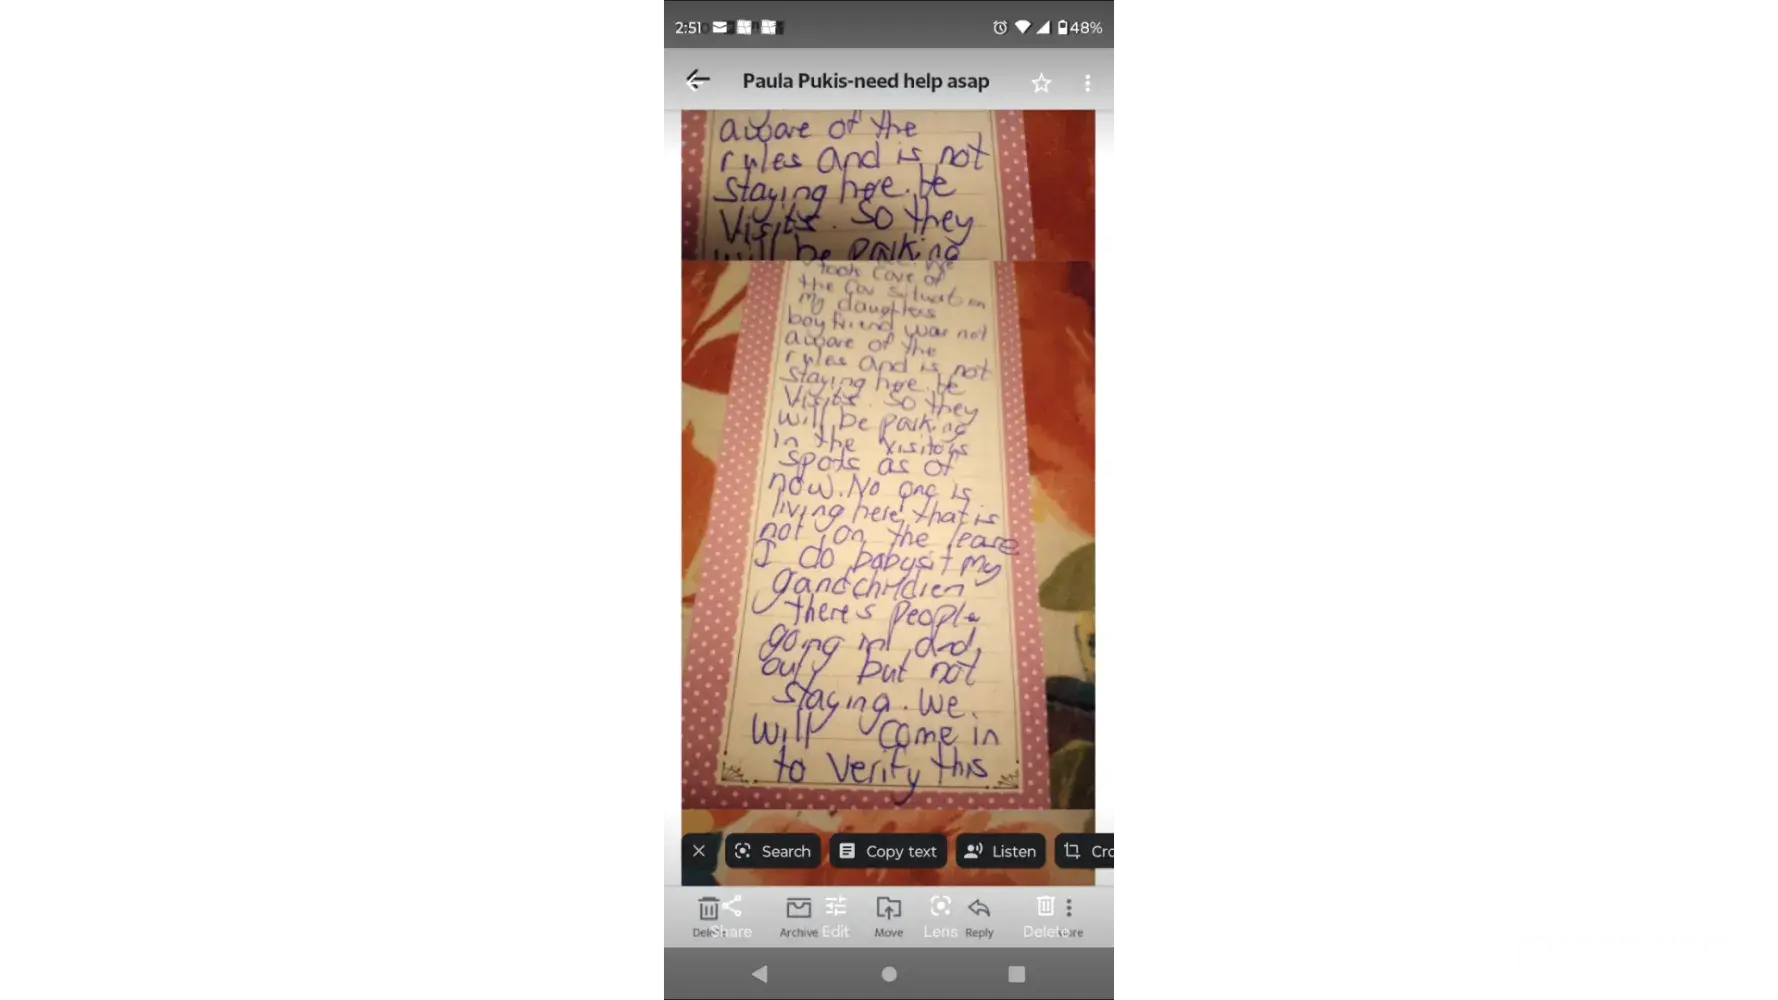 2:51
48%
Paula Pukis-need help asap
aware of the
rules and is not
staying here. he
Visits. So they
will be parking
took care of
the Car situation
My daughters
boyfriend was not
aware of the
rules and is not
staying here. he
Visits. So they
will be parking
In the visitors
spots as of
now. No one is
living here, that is
not on the lease
I do babysit my
gandchildien
theres people
going in and
out, but not
staying. We
Will come in
to Verify this
Search
Copy text
Listen
Cro
Share
Archive
Edit
Move
Lens
Reply
Delete